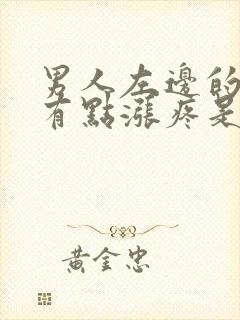 男人左邊的
有點漲疼是
黃金忠